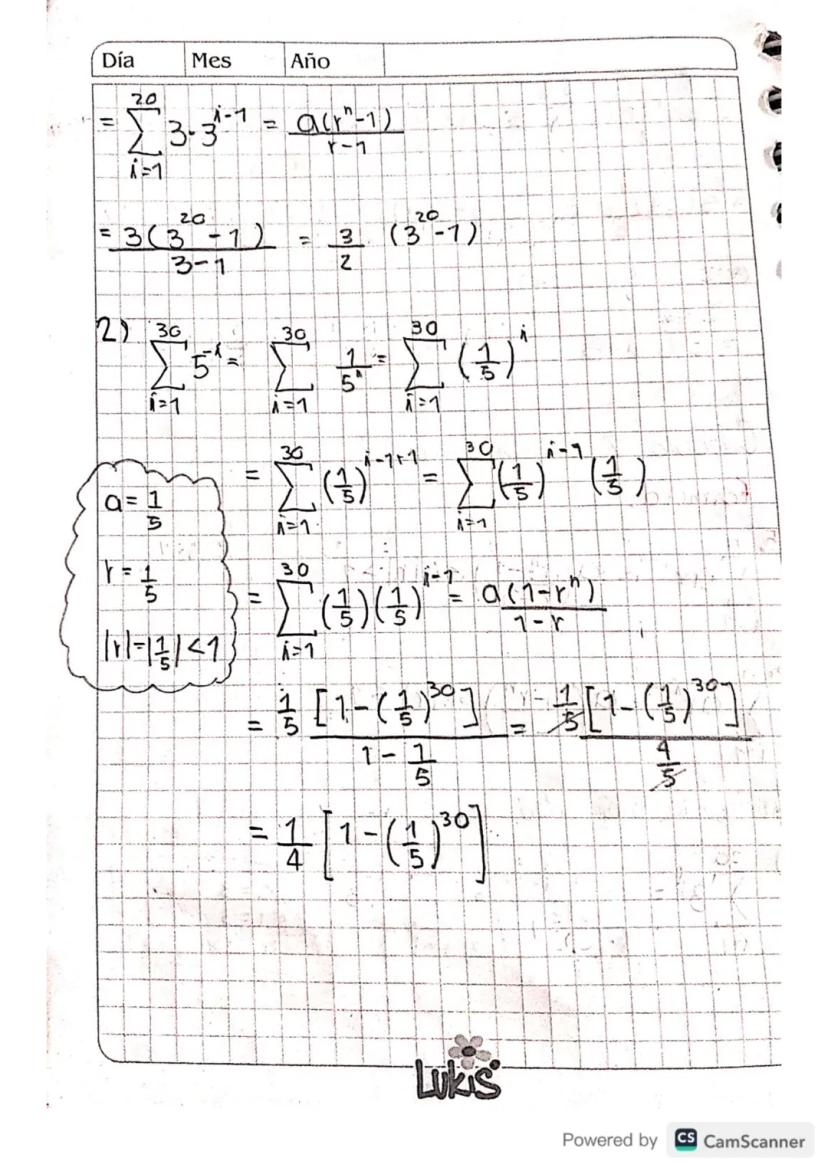 Día Mes Año
= \sum_{i=1}^{20} 3 \cdot 3^{i-1} = \frac{a(r^n-1)}{r-1}
= \frac{3(3^{20}-1)}{3-1} = \frac{3}{2} (3^{20}-1)
2) \sum_{i=1}^{30} 5^{-i} = \sum_{i=1}^{30} \frac{1}{5^i} = \sum_{i=1}^{30} (\frac{1}{5})^i
= \sum_{i=1}^{30} (\frac{1}{5})^{i-1+1} = \sum_{i=1}^{30} (\frac{1}{5})^{i-1} (\frac{1}{5})
a = \frac{1}{5}
r = \frac{1}{5}
|r| = |\frac{1}{5}| < 1
= \sum_{i=1}^{30} (\frac{1}{5}) (\frac{1}{5})^{i-1} = \frac{a(1-r^n)}{1-r}
= \frac{\frac{1}{5} [1-(\frac{1}{5})^{30}]}{1-\frac{1}{5}} = \frac{\frac{1}{5} [1-(\frac{1}{5})^{30}]}{\frac{4}{5}}
= \frac{1}{4} [1-(\frac{1}{5})^{30}]
Lukis
Powered by CS CamScanner